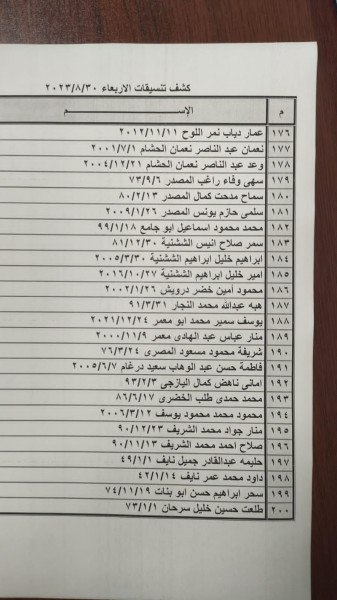 كشف تنسيقات الاربعاء ٢٠٢٣/٨/٣٠
م الإســـــــم
١٧٦ عمار دياب نمر اللوح ٢٠١٢/١١/١١
١٧٧ نعمان عبد الناصر نعمان الحشام ٢٠٠١/٧/١
١٧٨ وعد عبد الناصر نعمان الحشام ٢٠٠٤/١٢/٢١
١٧٩ سهى وفاء راغب المصدر ٧٣/٩/٦
١٨٠ سماح مدحت كمال المصدر ٨٠/٢/١٣
١٨١ سلمى حازم يونس المصدر ٢٠٠٩/١/٢٦
١٨٢ محمد محمود اسماعيل ابو جامع ٩٩/١/١٨
١٨٣ سمر صلاح انيس الششنية ٨١/١٢/٣٠
١٨٤ ابراهيم خليل ابراهيم الششنية ٢٠٠٥/٣/٣٠
١٨٥ امير خليل ابراهيم الششنية ٢٠١٦/١٠/٢٧
١٨٦ محمود امين خضر درويش ٢٠٠٢/١/٢٦
١٨٧ هبه عبدالله محمد النجار ٩١/٣/٣١
١٨٨ يوسف سمير محمد ابو معمر ٢٠٢١/١٢/٢٤
١٨٩ منار عباس عبد الهادى معمر ٢٠٠٠/١١/٩
١٩٠ شريفة محمود مسعود المصرى ٧٦/٣/٢٤
١٩١ فاطمة حسن عبد الوهاب سعيد درغام ٢٠٠٥/٦/٧
١٩٢ امانى ناهض كمال اليازجى ٩٣/٢/٣
١٩٣ محمد حمدى طلب الخضرى ٨٦/٦/١٧
١٩٤ محمود محمد محمود يوسف ٢٠٠٦/٣/١٢
١٩٥ منار جواد محمد الشريف ٩٠/١٢/٢٣
١٩٦ صلاح احمد محمد الشريف ٩٠/١١/١٣
١٩٧ حليمه عبدالقادر جميل نايف ٤٩/١/١
١٩٨ داود محمد عمر نايف ٤٢/١/١٤
١٩٩ سحر ابراهيم حسن ابو بنات ٧٤/١١/١٩
٢٠٠ طلعت حسين خليل سرحان ٧٣/١/١